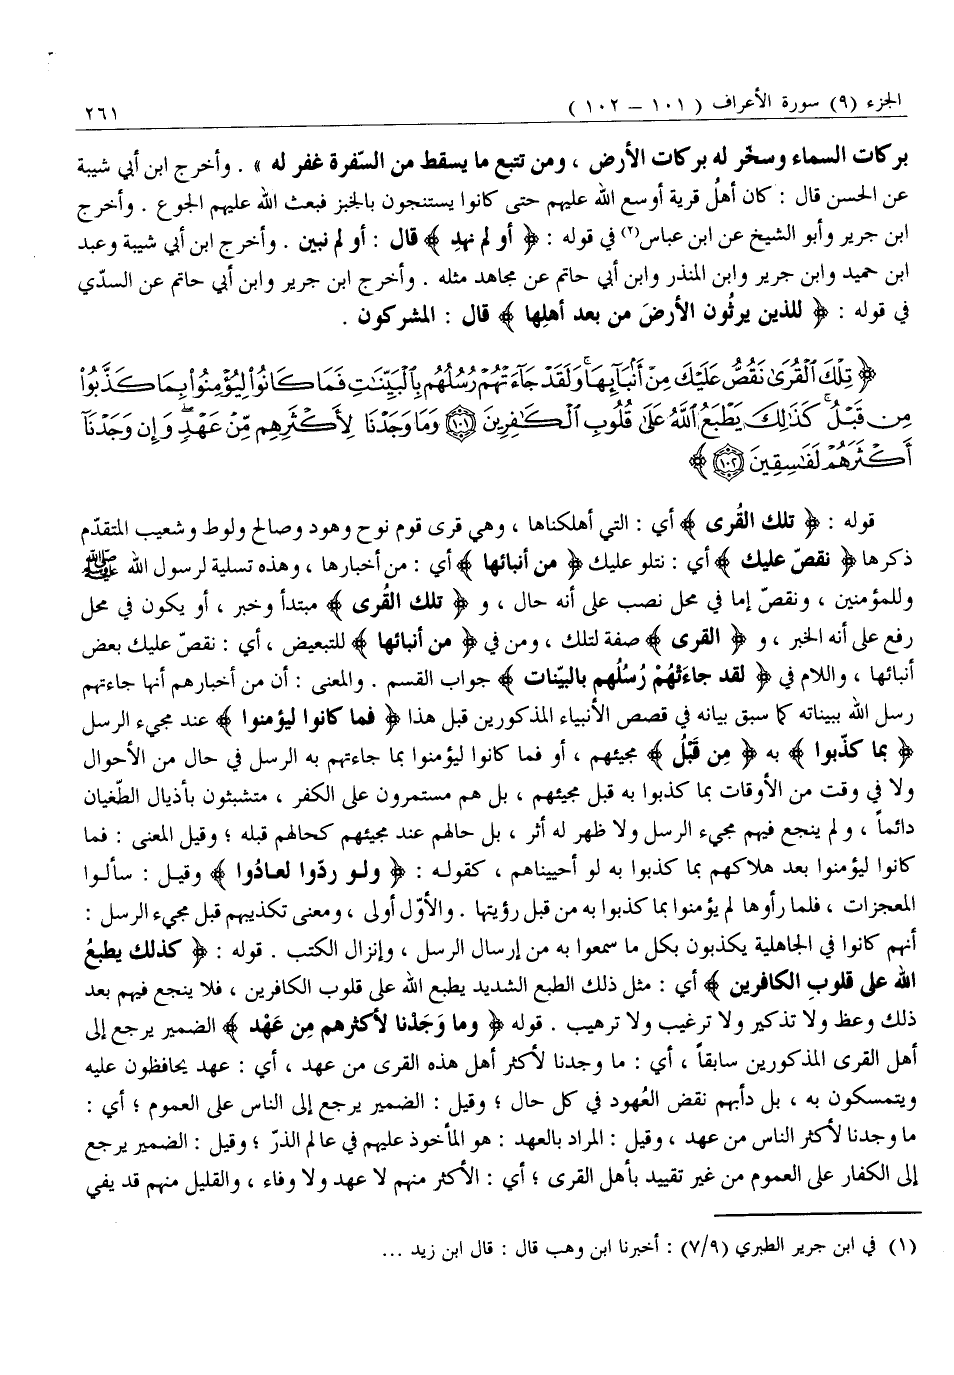 الجزء (٩) سورة الأعراف ( ١٠١ - ١٠٢ )
٢٦١
بركات السماء وسخّر له بركات الأرض ، ومن تتبع ما يسقط من السّفرة غفر له » . وأخرج ابن أبي شيبة
عن الحسن قال : كان أهلُ قرية أوسع الله عليهم حتى كانوا يستنجون بالخبز فبعث الله عليهم الجوع . وأخرج
ابن جرير وأبو الشيخ عن ابن عباس(٢) في قوله : ﴿ أو لم نهدِ ﴾ قال : أو لم نبين . وأخرج ابن أبي شيبة وعبد
ابن حميد وابن جرير وابن المنذر وابن أبي حاتم عن مجاهد مثله . وأخرج ابن جرير وابن أبي حاتم عن السدّي
في قوله : ﴿ للذين يرثُون الأرضَ من بعد أهلِها ﴾ قال : المشركون .
﴿ تِلْكَ ٱلْقُرَىٰ نَقُصُّ عَلَيْكَ مِنْ أَنۢبَآئِهَا ۚ وَلَقَدْ جَآءَتْهُمْ رُسُلُهُم بِٱلْبَيِّنَٰتِ فَمَا كَانُوا۟ لِيُؤْمِنُوا۟ بِمَا كَذَّبُوا۟
مِن قَبْلُ ۚ كَذَٰلِكَ يَطْبَعُ ٱللَّهُ عَلَىٰ قُلُوبِ ٱلْكَٰفِرِينَ ١٠١ وَمَا وَجَدْنَا لِأَكْثَرِهِم مِّنْ عَهْدٍ ۖ وَإِن وَجَدْنَآ
أَكْثَرَهُمْ لَفَٰسِقِينَ ١٠٢ ﴾
قوله : ﴿ تلك القُرى ﴾ أي : التي أهلكناها ، وهي قرى قوم نوح وهود وصالح ولوط وشعيب المتقدّم
ذكرها ﴿ نقصّ عليك ﴾ أي : نتلو عليك ﴿ من أنبائها ﴾ أي : من أخبارها ، وهذه تسلية لرسول الله ﷺ
وللمؤمنين ، ونقصّ إما في محل نصب على أنه حال ، و ﴿ تلك القُرى ﴾ مبتدأ وخبر ، أو يكون في محل
رفع على أنه الخبر ، و ﴿ القرى ﴾ صفة لتلك ، ومن في ﴿ من أنبائها ﴾ للتبعيض ، أي : نقصّ عليك بعض
أنبائها ، واللام في ﴿ لقد جاءَتْهُمْ رُسُلُهم بالبيّنات ﴾ جواب القسم . والمعنى : أن من أخبارهم أنها جاءتهم
رسل الله ببيناته كما سبق بيانه في قصص الأنبياء المذكورين قبل هذا ﴿ فما كانوا ليؤمنوا ﴾ عند مجيء الرسل
﴿ بما كذّبوا ﴾ به ﴿ مِن قَبْلُ ﴾ مجيئهم ، أو فما كانوا ليؤمنوا بما جاءتهم به الرسل في حال من الأحوال
ولا في وقت من الأوقات بما كذبوا به قبل مجيئهم ، بل هم مستمرون على الكفر ، متشبثون بأذيال الطّغيان
دائماً ، ولم ينجع فيهم مجيء الرسل ولا ظهر له أثر ، بل حالهم عند مجيئهم كحالهم قبله ؛ وقيل المعنى : فما
كانوا ليؤمنوا بعد هلاكهم بما كذبوا به لو أحييناهم ، كقوله : ﴿ ولو ردّوا لعادُوا ﴾ وقيل : سألوا
المعجزات ، فلما رأوها لم يؤمنوا بما كذبوا به من قبل رؤيتها . والأوّل أولى ، ومعنى تكذيبهم قبل مجيء الرسل :
أنهم كانوا في الجاهلية يكذبون بكل ما سمعوا به من إرسال الرسل ، وإنزال الكتب . قوله : ﴿ كذلك يطبعُ
الله على قلوبِ الكافرين ﴾ أي : مثل ذلك الطبع الشديد يطبع الله على قلوب الكافرين ، فلا ينجع فيهم بعد
ذلك وعظ ولا تذكير ولا ترغيب ولا ترهيب . قوله ﴿ وما وَجَدْنا لأكثرهم مِن عَهْد ﴾ الضمير يرجع إلى
أهل القرى المذكورين سابقاً ، أي : ما وجدنا لأكثر أهل هذه القرى من عهد ، أي : عهد يحافظون عليه
ويتمسكون به ، بل دأبهم نقض العُهود في كل حال ؛ وقيل : الضمير يرجع إلى الناس على العموم ؛ أي :
ما وجدنا لأكثر الناس من عهد ، وقيل : المراد بالعهد : هو المأخوذ عليهم في عالم الذرّ ؛ وقيل : الضمير يرجع
إلى الكفار على العموم من غير تقييد بأهل القرى ؛ أي : الأكثر منهم لا عهد ولا وفاء ، والقليل منهم قد يفي
(١) في ابن جرير الطبري (٧/٩) : أخبرنا ابن وهب قال : قال ابن زيد ...